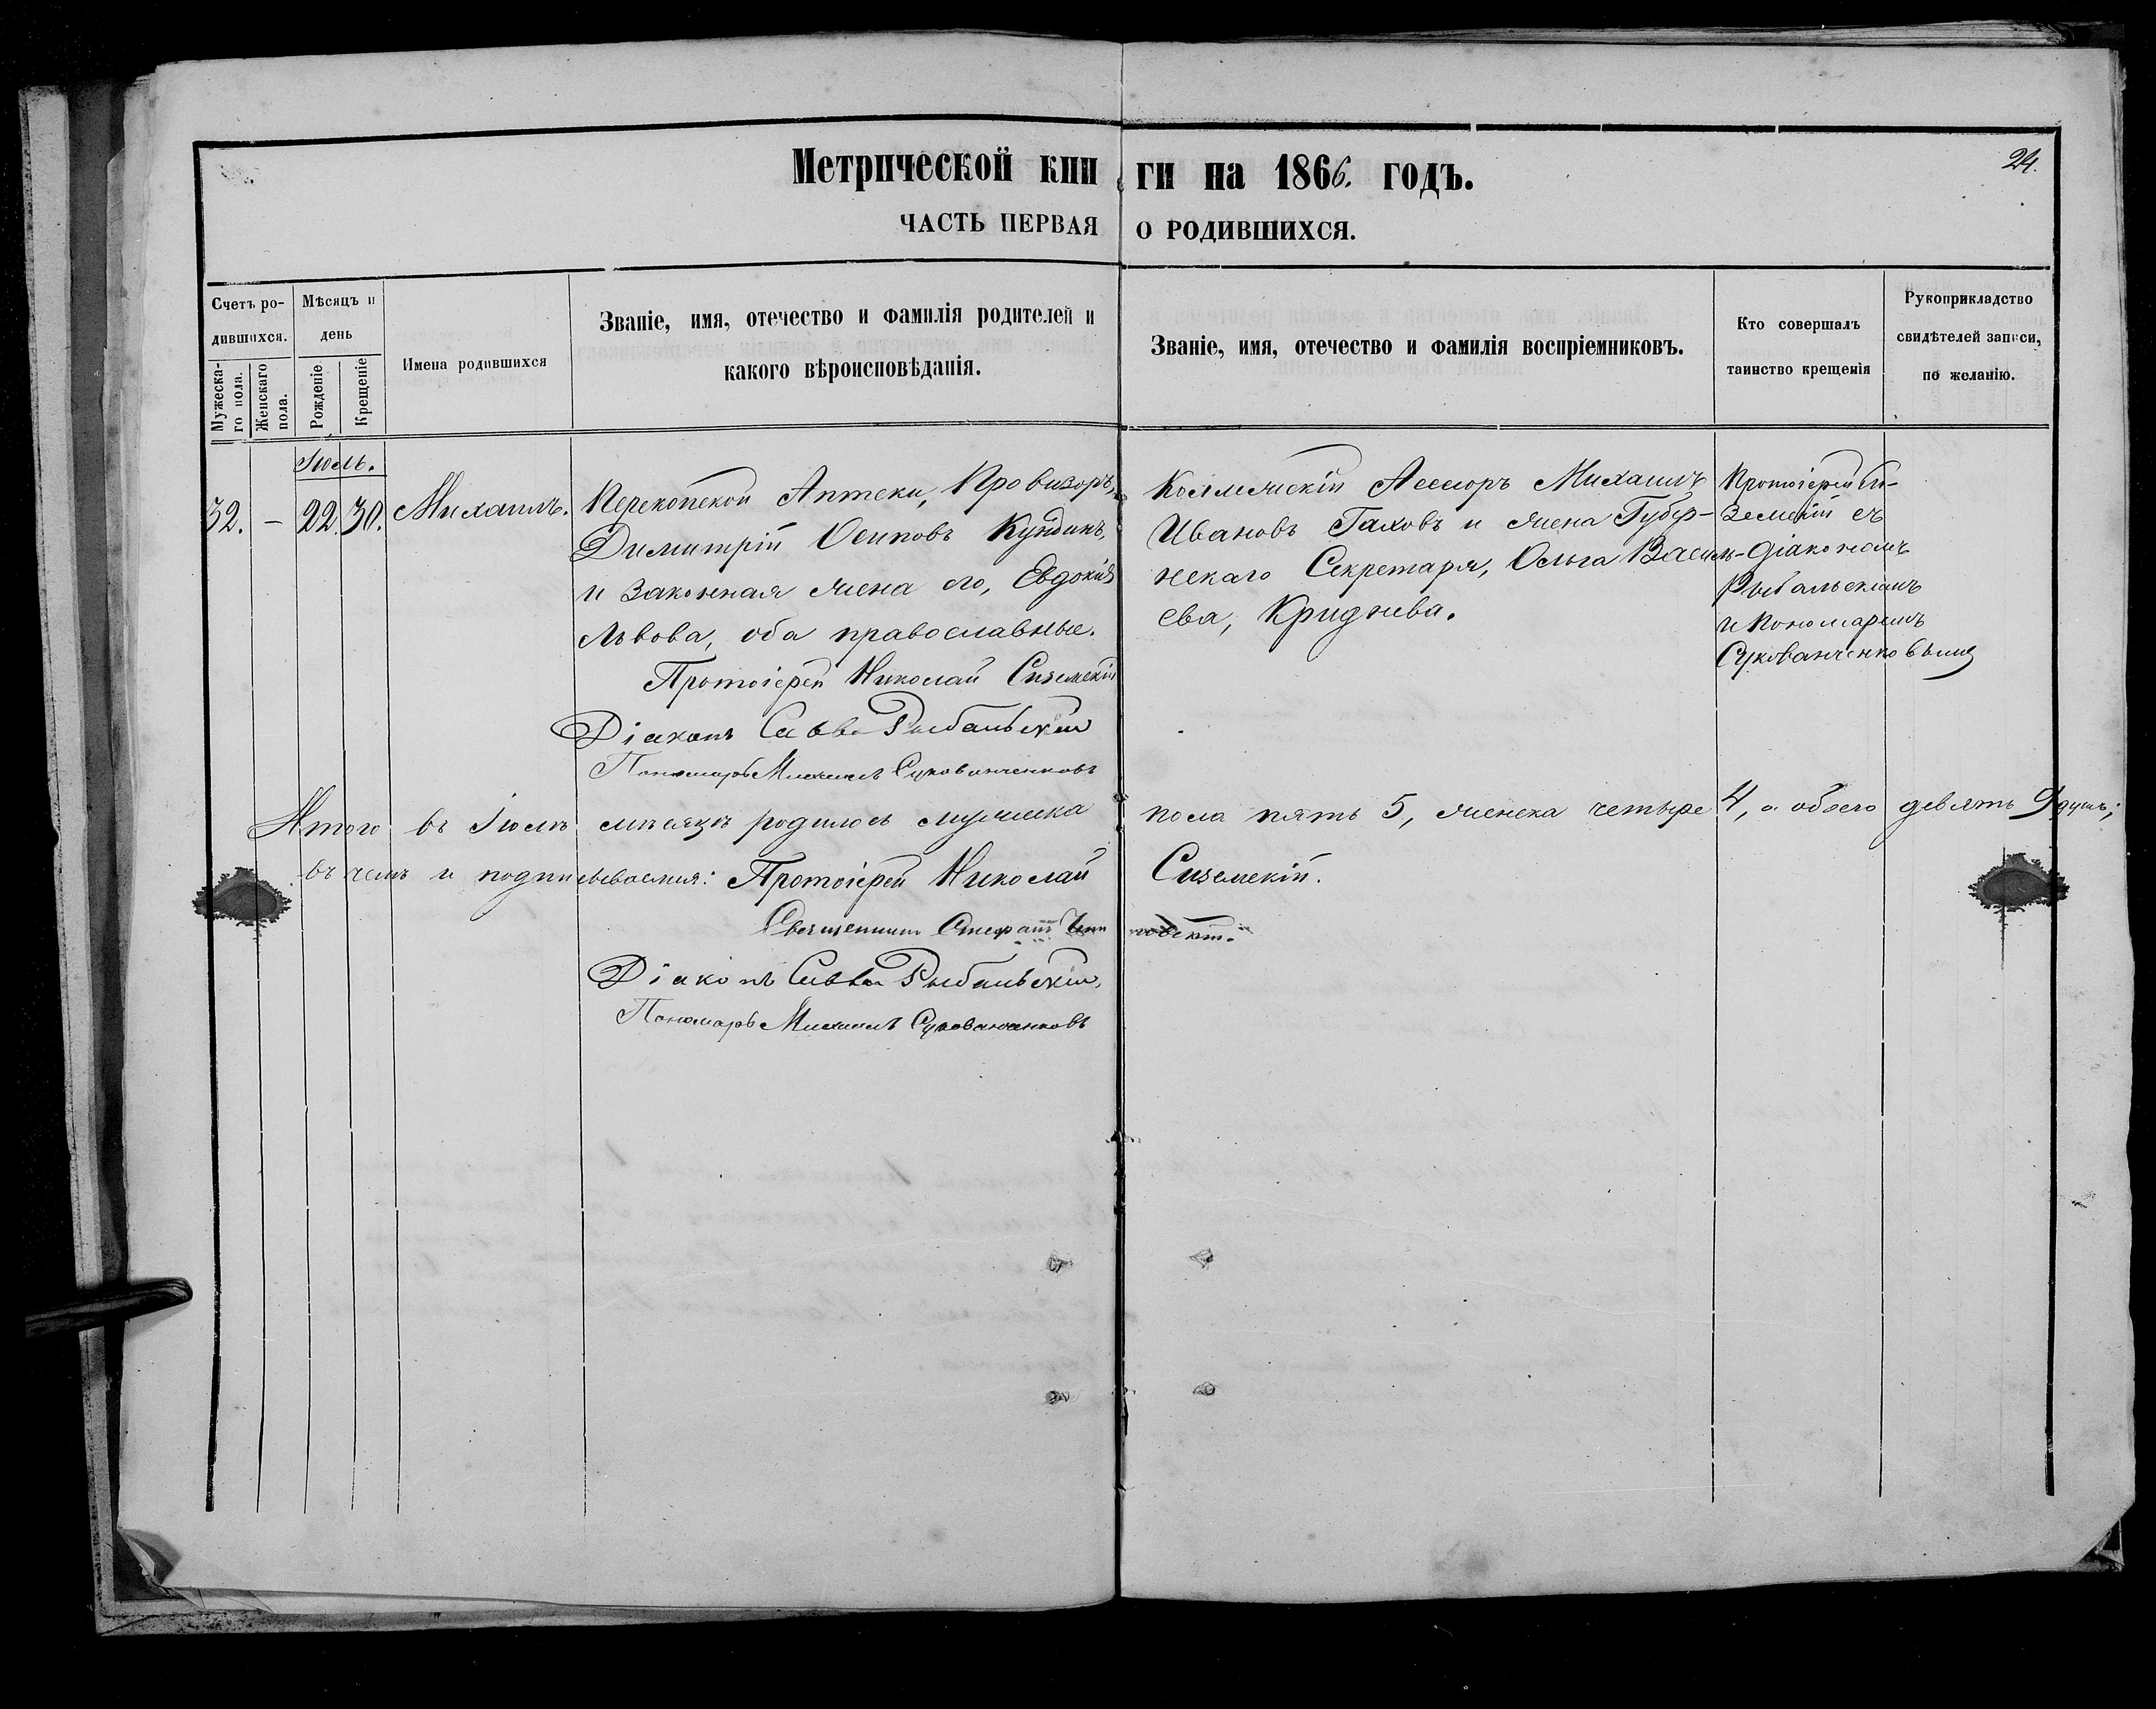 Метрической кни ги на 1866. годъ.
24.
ЧАСТЬ ПЕРВАЯ О РОДИВШИХСЯ.
Счетъ ро-
дившихся.
Мужеска-
го пола.
Женскаго
пола.
Мѣсяцъ и
день
Рожденіе
Крещеніе
Имена родившихся
Званіе, имя, отечество и фамилія родителей и
какого вѣроисповѣданія.
Званіе, имя, отечество и фамилія воспріемниковъ.
Кто совершалъ
таинство крещенія
Рукоприкладство
свидѣтелей записи,
по желанію.
Іюль.
32. – 22. 30. Михаилъ.
Перекопской Аптеки, Провизоръ,
Димитрій Осиповъ
и законная жена его, Евдокія
Львова, оба православные.
Протоіерей Николай Сиземскій
Діаконъ Савва Рыбальскій
Пономарь Михаилъ Сукованченковъ
Коллежскій Ассесоръ Михаилъ
Ивановъ и жена Губер-
нскаго Секретаря, Ольга Василь-
ева, Криднева.
Протоіерей Си-
земскій съ
Діакономъ
Рыбальскимъ
и Пономаремъ
Сукованченковымъ
Итого въ Іюлѣ мѣсяцѣ родилось мужеска пола пять 5, женска четыре 4, а обоего девять 9 душъ;
въ чемъ и подписываемся: Протоіерей Николай Сиземскій.
Священникъ Стефанъ
Діаконъ Савва Рыбальскій,
Пономарь Михаилъ Сукованченковъ